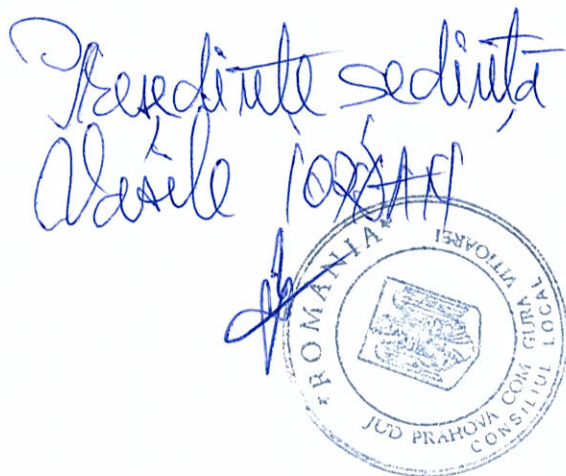 Președinte sedință
Vasile
*ROMANIA*
JUD PRAHOVA COM GURA VITIOAREI
CONSILIUL LOCAL